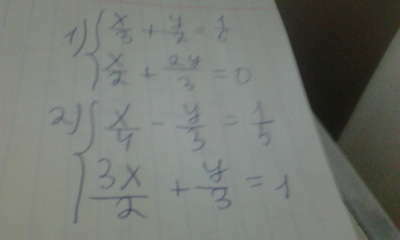 1) { x/3 + y/2 = 1/6
x/2 + 2y/3 = 0
2) { x/4 - y/3 = 1/3
3x/2 + y/3 = 1